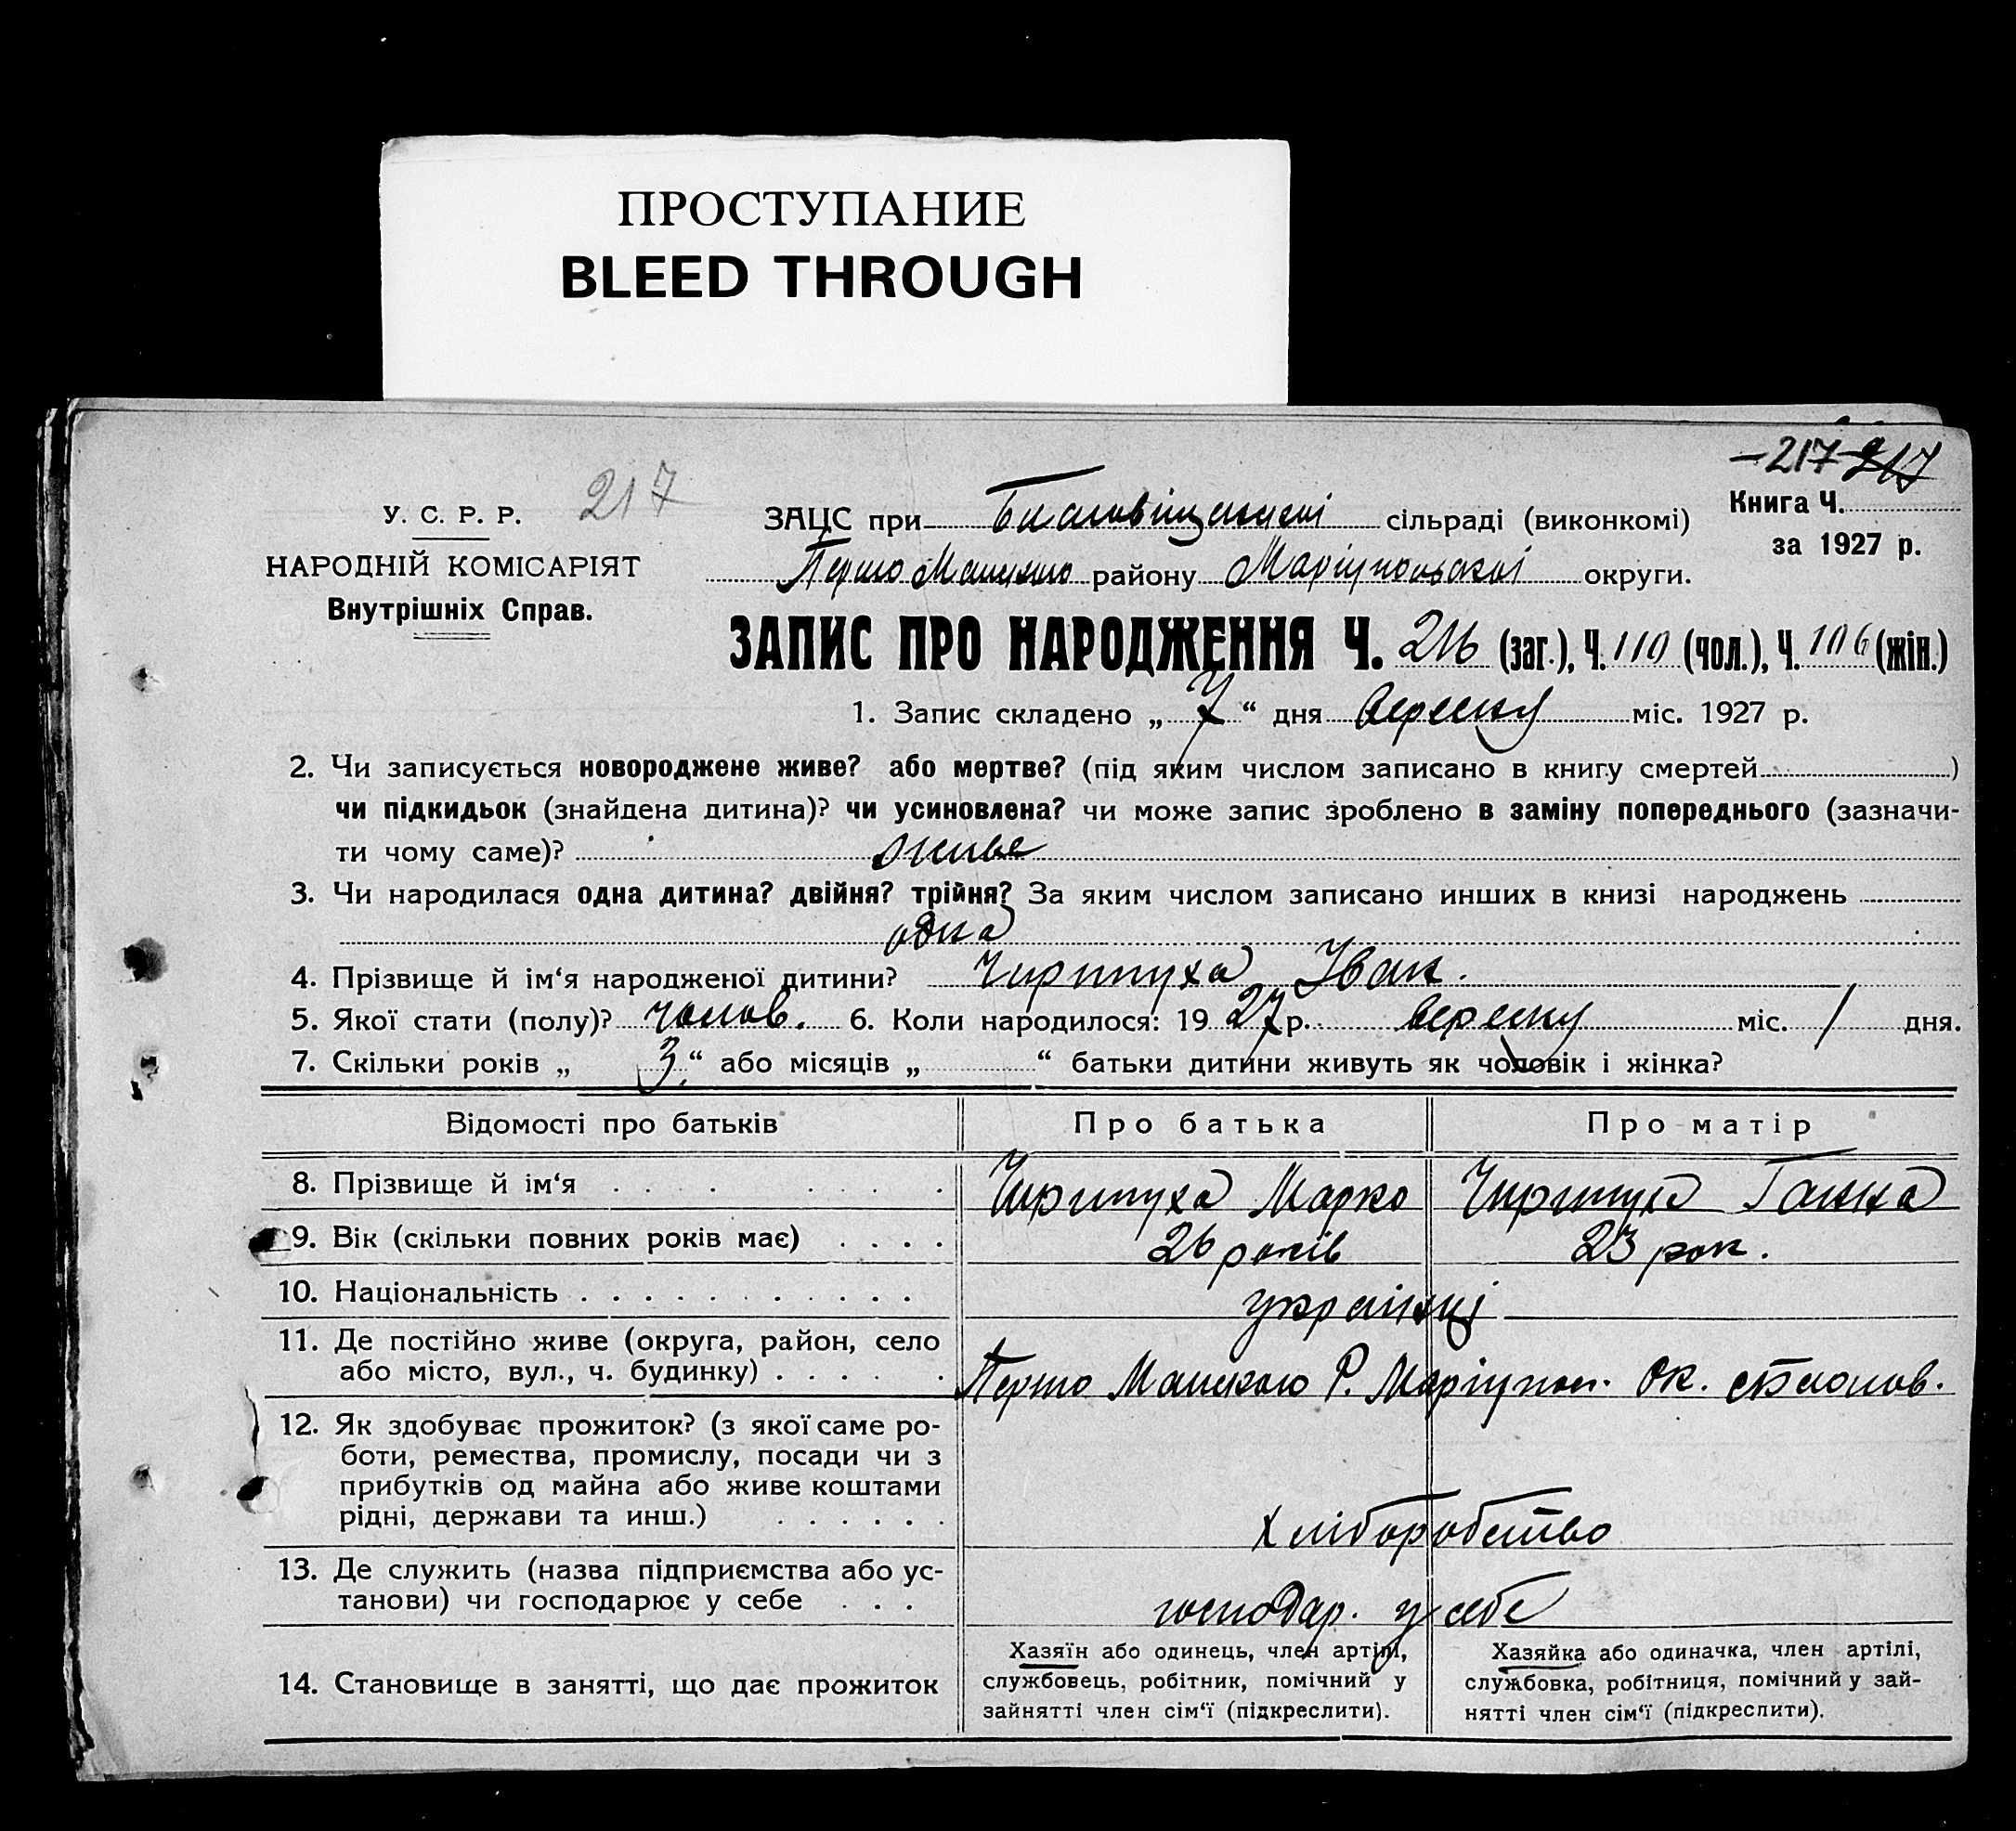 ПРОСТУПАНИЕ
BLEED THROUGH
-217 217
У. С. Р. Р. 217
НАРОДНІЙ КОМІСАРІЯТ
Внутрішніх Справ.
ЗАЦС при Благовіщенскі сільраді (виконкомі)
Книга Ч.
за 1927 р.
Першо Манськ району Маріупольської округи.
ЗАПИС ПРО НАРОДЖЕННЯ Ч. 216 (заг.), Ч. 110 (чол.), Ч. 106 (жін.)
1. Запис складено „ 7 “ дня вересня міс. 1927 р.
2. Чи записується новороджене живе? або мертве? (під яким числом записано в книгу смертей )
чи підкидьок (знайдена дитина)? чи усиновлена? чи може запис зроблено в заміну попереднього (зазначи-
ти чому саме)? живе
3. Чи народилася одна дитина? двійня? трійня? За яким числом записано инших в книзі народжень
одна
4. Прізвище й ім‘я народженої дитини? Чиртуха Іван.
5. Якої стати (полу)? чолов. 6. Коли народилося: 19 27 р. вересня міс. 1 дня.
7. Скільки років „ 3 “ або місяців „ “ батьки дитини живуть як чоловік і жінка?
Відомості про батьків Про батька Про матір
8. Прізвище й ім‘я . . . . . . . Чиртуха Марко Чиртуха Ганна
9. Вік (скільки повних років має) . . . . 26 років 23 рок.
10. Національність . . . . . . . . . . . . українці
11. Де постійно живе (округа, район, село
або місто, вул., ч. будинку) . . . . . . Першо Р. Маріупол. Ок.
12. Як здобуває прожиток? (з якої саме ро-
боти, ремества, промислу, посади чи з
прибутків од майна або живе коштами
рідні, держави та инш.) . . . . . . хліборобство
13. Де служить (назва підприємства або ус-
танови) чи господарює у себе . . . господар. у себе
14. Становище в занятті, що дає прожиток
Хазяїн або одинець, член артілі,
службовець, робітник, помічний у
зайнятті член сім‘ї (підкреслити).
Хазяйка або одиначка, член артілі,
службовка, робітниця, помічний у зай-
нятті член сім‘ї (підкреслити).